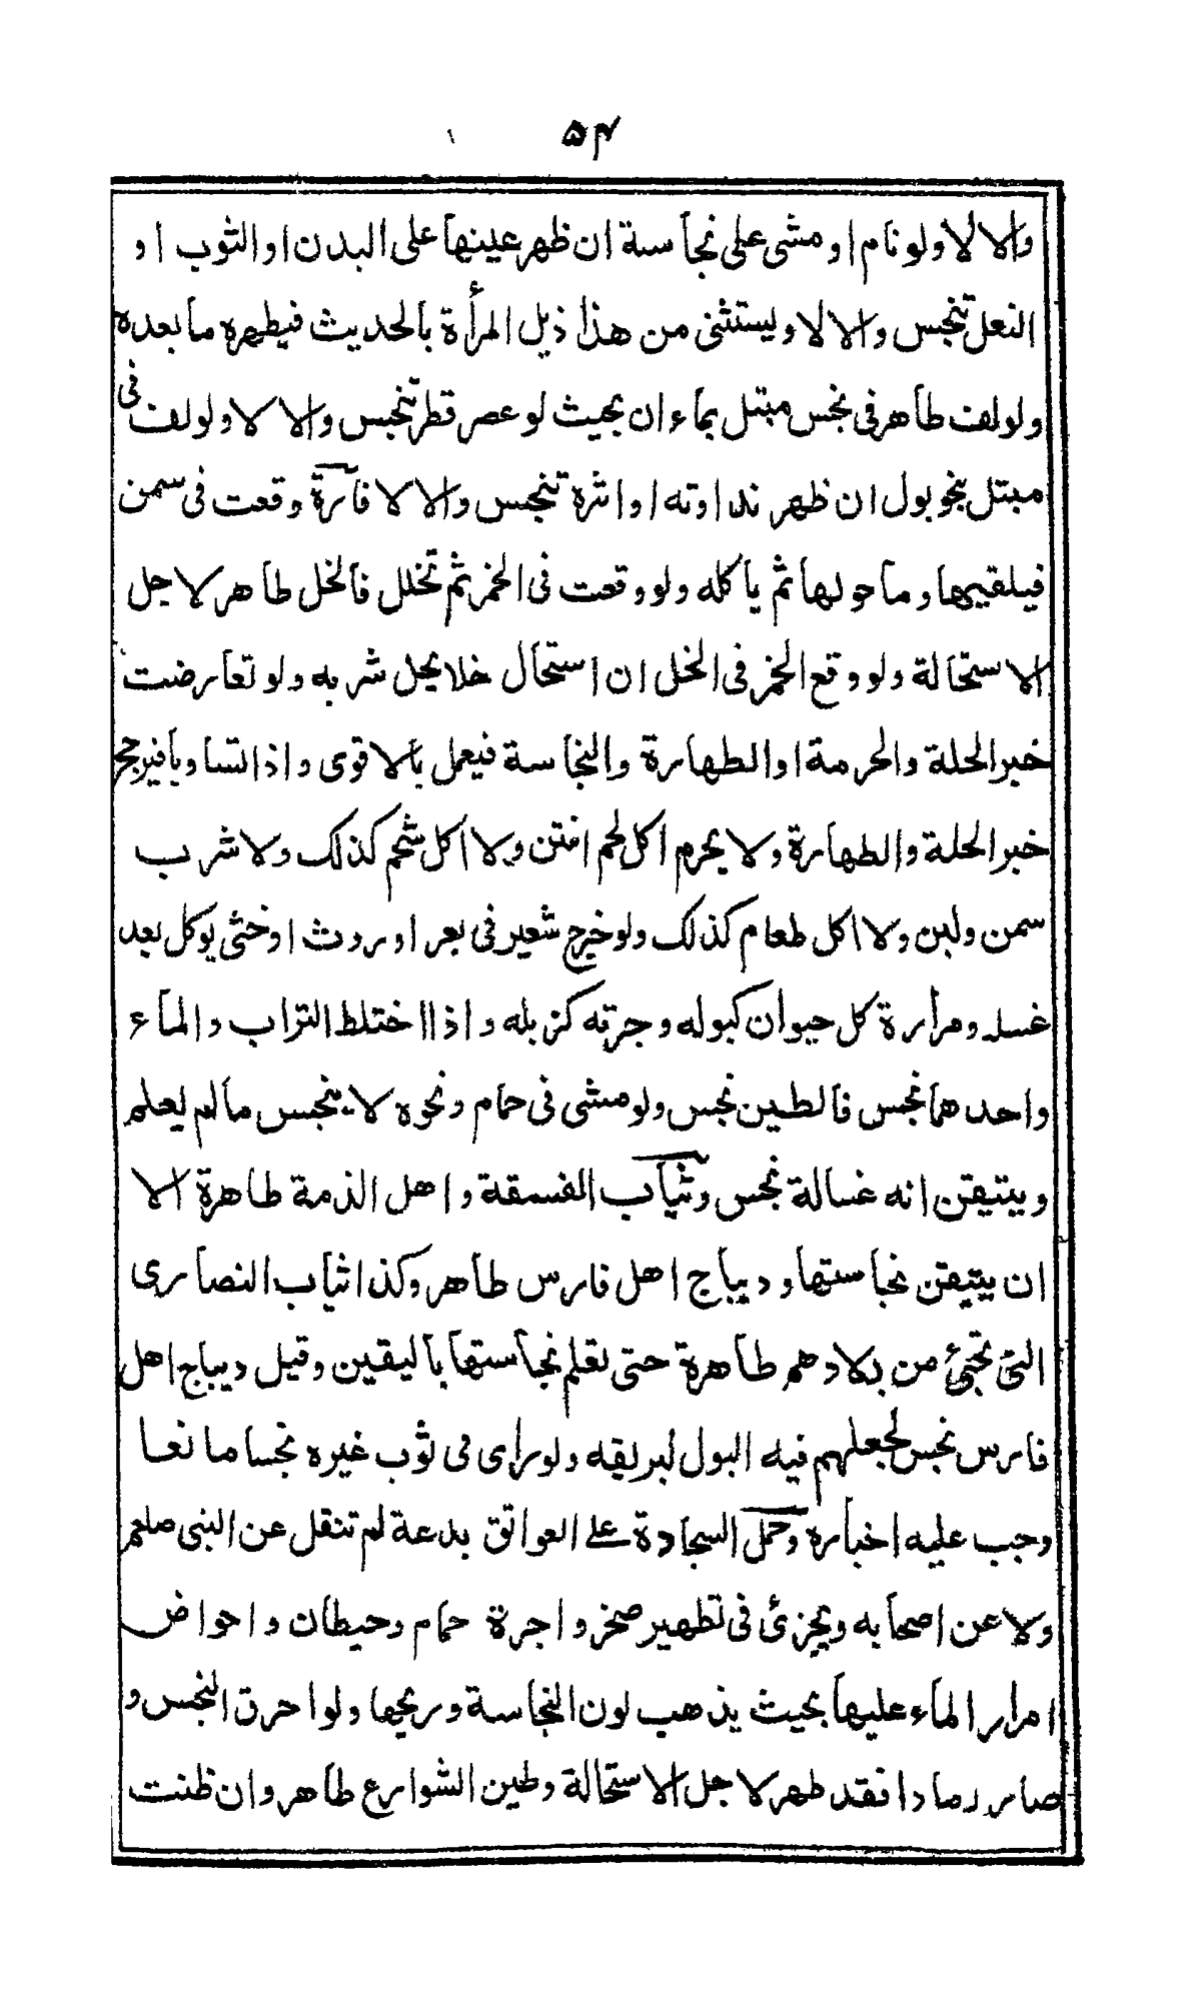 ۵۴
والا لا ولو نام او مشى على نجاسة ان ظهر عينها على البدن او الثوب او
النعل تنجس والا لا ويستثنى من هذا ذيل المرأة بالحديث فيطهره ما بعده
ولو لف طاهر فى نجس مبتل بماء ان بحيث لو عصر قطر تنجس والا لا ولو لف فى
مبتل بنجو بول ان ظهر نداوته او اثره تنجس والا لا فآرة وقعت فى سمن
فيلقيها وما حولها ثم يأكله ولو وقعت فى الخمر ثم تخلل فالخل طاهر لاجل
الاستحالة ولو وقع الخمر فى الخل ان استحال خلا يحل شربه ولو تعارضت
خبر الحلة والحرمة او الطهارة والنجاسة فيعمل بالاقوى واذا تساويا فيرجح
خبر الحلة والطهارة ولا يحرم اكل لحم انتن ولا اكل شحم كذلك ولا شرب
سمن ولبن ولا اكل طعام كذلك ولو خرج شعير فى بعر او روث او خثى يوكل بعد
غسله ومرارة كل حيوان كبوله وجرته كزبله واذا اختلط التراب والماء
واحدهما نجس فالطين نجس ولو مشى فى حمام ونحوه لا ينجس مالم يعلم
ويتيقن انه غسالة نجس وثياب الفسقة واهل الذمة طاهرة الا
ان يتيقن نجاستها وديباج اهل فارس طاهر وكذا ثياب النصارى
التى تجئ من بلادهم طاهرة حتى تعلم نجاستها باليقين وقيل ديباج اهل
فارس نجس لجعلهم فيه البول لبريقه ولو رأى فى ثوب غيره نجسا مانعا
وجب عليه اخباره وحمل السجادة على العواتق بدعة لم تنقل عن النبى صلعم
ولا عن اصحابه ويجزئ فى تطهير صخر واجرة حمام وحيطان واحواض
امرار الماء عليها بحيث يذهب لون النجاسة وريحها ولو احرق النجس و
صار رمادا فقد طهر لاجل الاستحالة وطين الشوارع طاهر وان ظنت